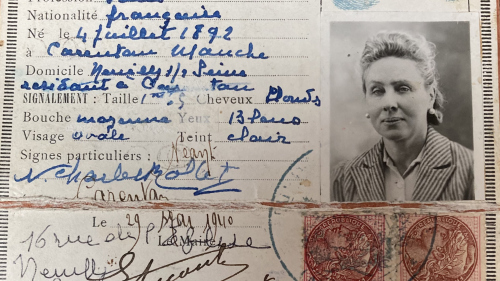 Profession
Nationalité française
Né le 4 juillet 1892
à Carentan Manche
Domicile Neuilly s/ Seine
résidant à Carentan
SIGNALEMENT : Taille 1m65 Cheveux blonds
Bouche moyenne Yeux Bleus
Visage ovale Teint clair
Signes particuliers : Néant
Carentan
Le 29 Mai 1940
16 rue de l'Eglise
Le Maire
Neuilly